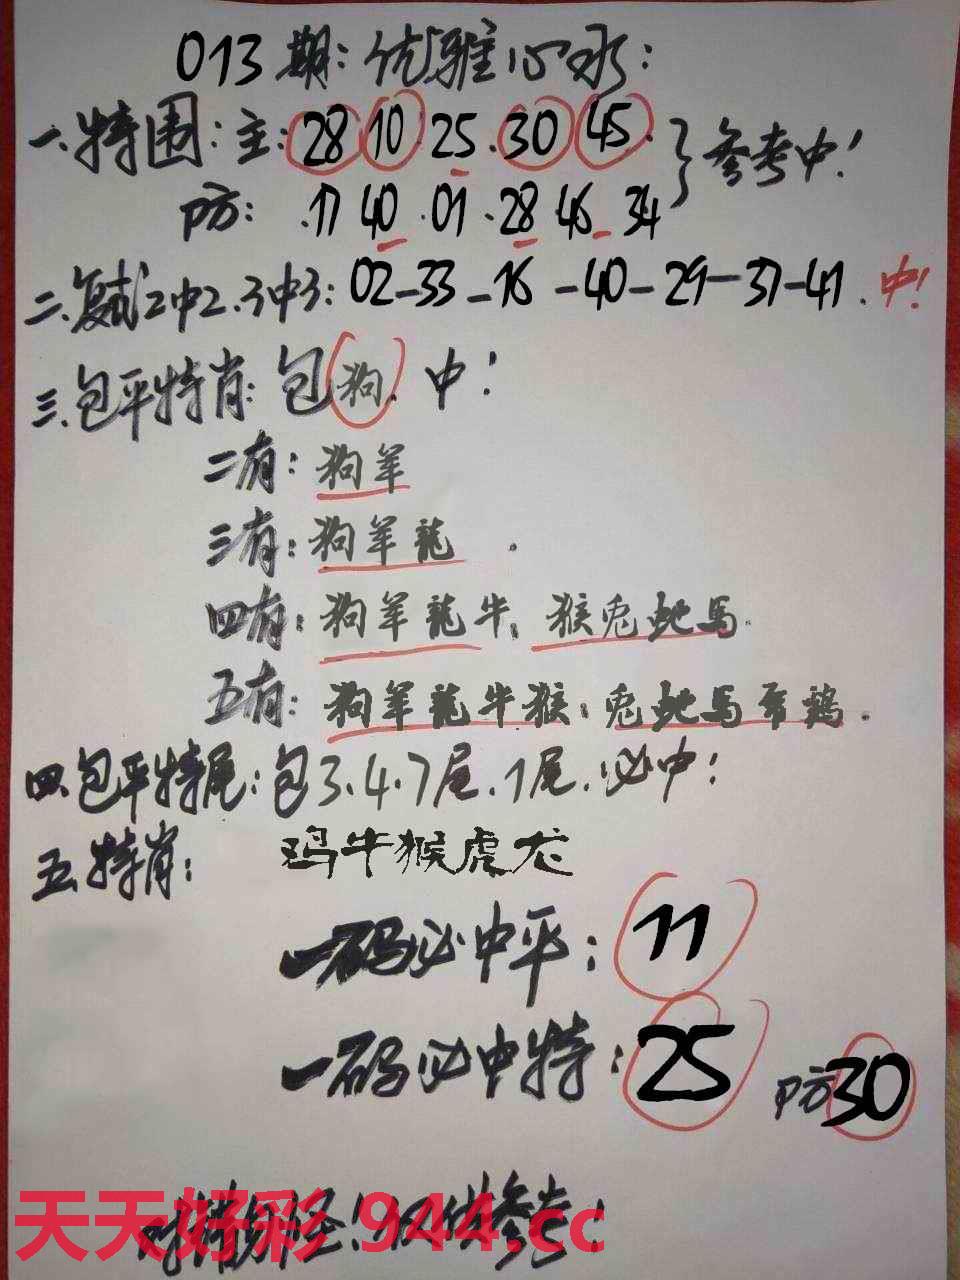 013期:优雅心水:
一.特围:主:28 10 25.30 45.}参考中!
防: .17 40 .01 .28 46 34
二.复式2中2.3中3:02-33-16-40-29-37-41.中!
三.包平特肖:包狗.中!
二有:狗羊
三有:狗羊龍.
四有:狗羊龍牛;猴兎蛇馬.
五有:狗羊龍牛猴;兎蛇馬 鷄.
四.包平特尾:包3.4.7尾.1尾.必中!
五.特肖: 鸡牛猴虎龙
一码必中平:11
一码必中特:25 防30
天天好彩.944.cc
猜 怪!仅供参考!